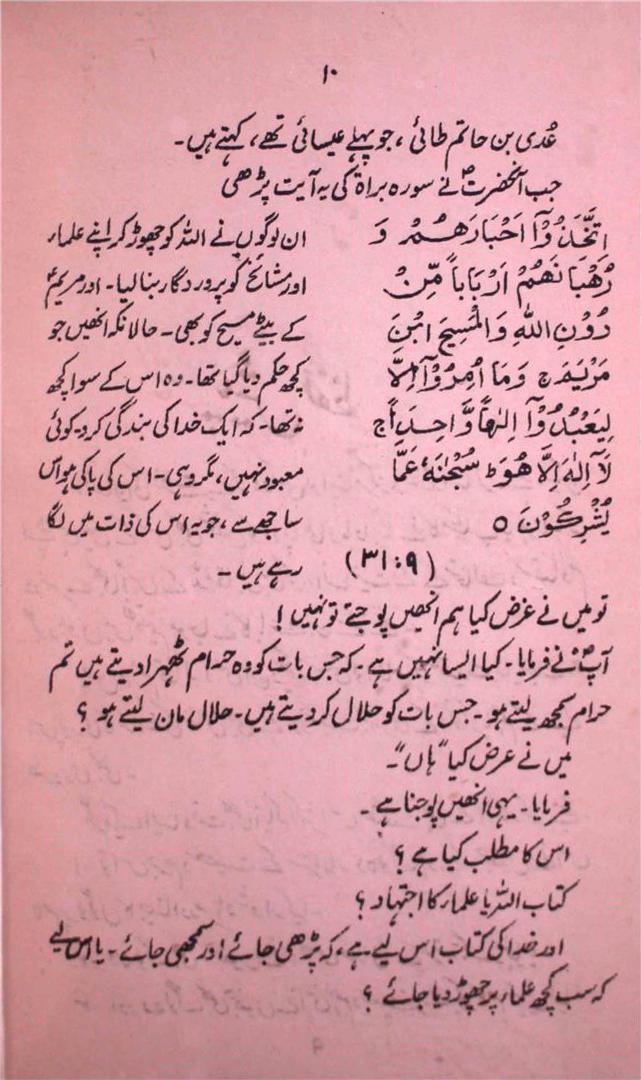 ۱۰
عدی بن حاتم طائی، جو پہلے عیسائی تھے، کہتے ہیں۔
جب آنحضرتؐ نے سورہ براۃ کی یہ آیت پڑھی
اِتَّخَذُوْآ اَحْبَارَهُمْ وَ
رُهْبَانَهُمْ اَرْبَاباً مِّنْ
دُوْنِ اللّٰهِ وَالْمَسِيْحَ ابْنَ
مَرْيَمَ ج وَمَا اُمِرُوْآ اِلَّا
لِيَعْبُدُوْآ اِلٰهاً وَّاحِداً ج
لَآ اِلٰهَ اِلَّا هُوَ ط سُبْحٰنَهٗ عَمَّا
يُشْرِكُوْنَ ○
(۹:۳۱)
ان لوگوں نے اللہ کو چھوڑ کر اپنے علماء
اور مشائخ کو پروردگار بنا لیا۔ اور مریمؑ
کے بیٹے مسیح کو بھی۔ حالانکہ انھیں جو
کچھ حکم دیا گیا تھا۔ وہ اس کے سوا کچھ
نہ تھا۔ کہ ایک خدا کی بندگی کرو۔ کوئی
معبود نہیں، مگر وہی۔ اس کی پاکی ہو اس
ساجھے سے، جو یہ اس کی ذات میں لگا
رہے ہیں۔
تو میں نے عرض کیا ہم انھیں پوجتے تو نہیں!
آپؐ نے فرمایا۔ کیا ایسا نہیں ہے۔ کہ جس بات کو وہ حرام ٹھہرا دیتے ہیں تم
حرام سمجھ لیتے ہو۔ جس بات کو حلال کر دیتے ہیں۔ حلال مان لیتے ہو؟
میں نے عرض کیا "ہاں"۔
فرمایا۔ یہی انھیں پوجنا ہے۔
اس کا مطلب کیا ہے؟
کتاب اللہ یا علماء کا اجتہاد؟
اور خدا کی کتاب اس لیے ہے، کہ پڑھی جائے اور سمجھی جائے۔ یا اس لیے
کہ سب کچھ علماء پر چھوڑ دیا جائے؟